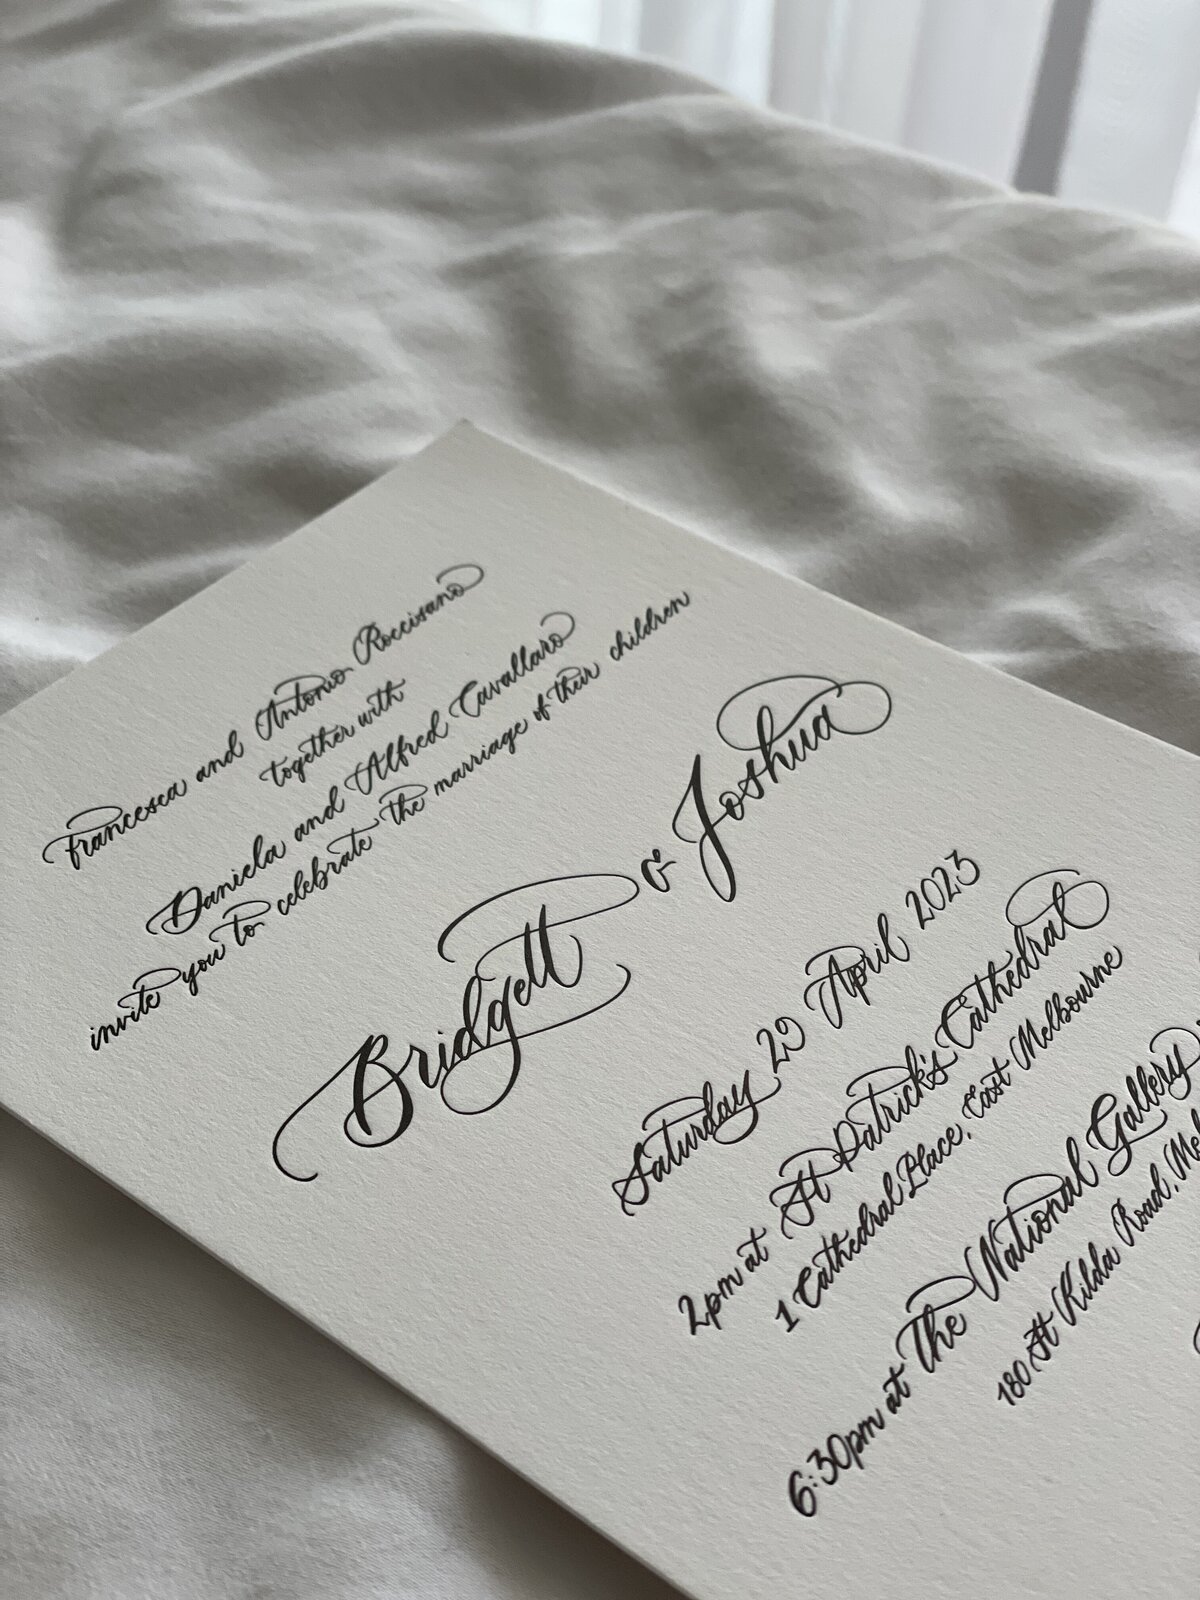 Francesca and Antonio Roccisano
together with
Daniela and Alfred Cavallaro
invite you to celebrate the marriage of their children
Bridgett & Joshua
Saturday 29 April 2023
2pm at St Patrick's Cathedral
1 Cathedral Place, East Melbourne
6:30pm at The National Gallery
180 St Kilda Road,